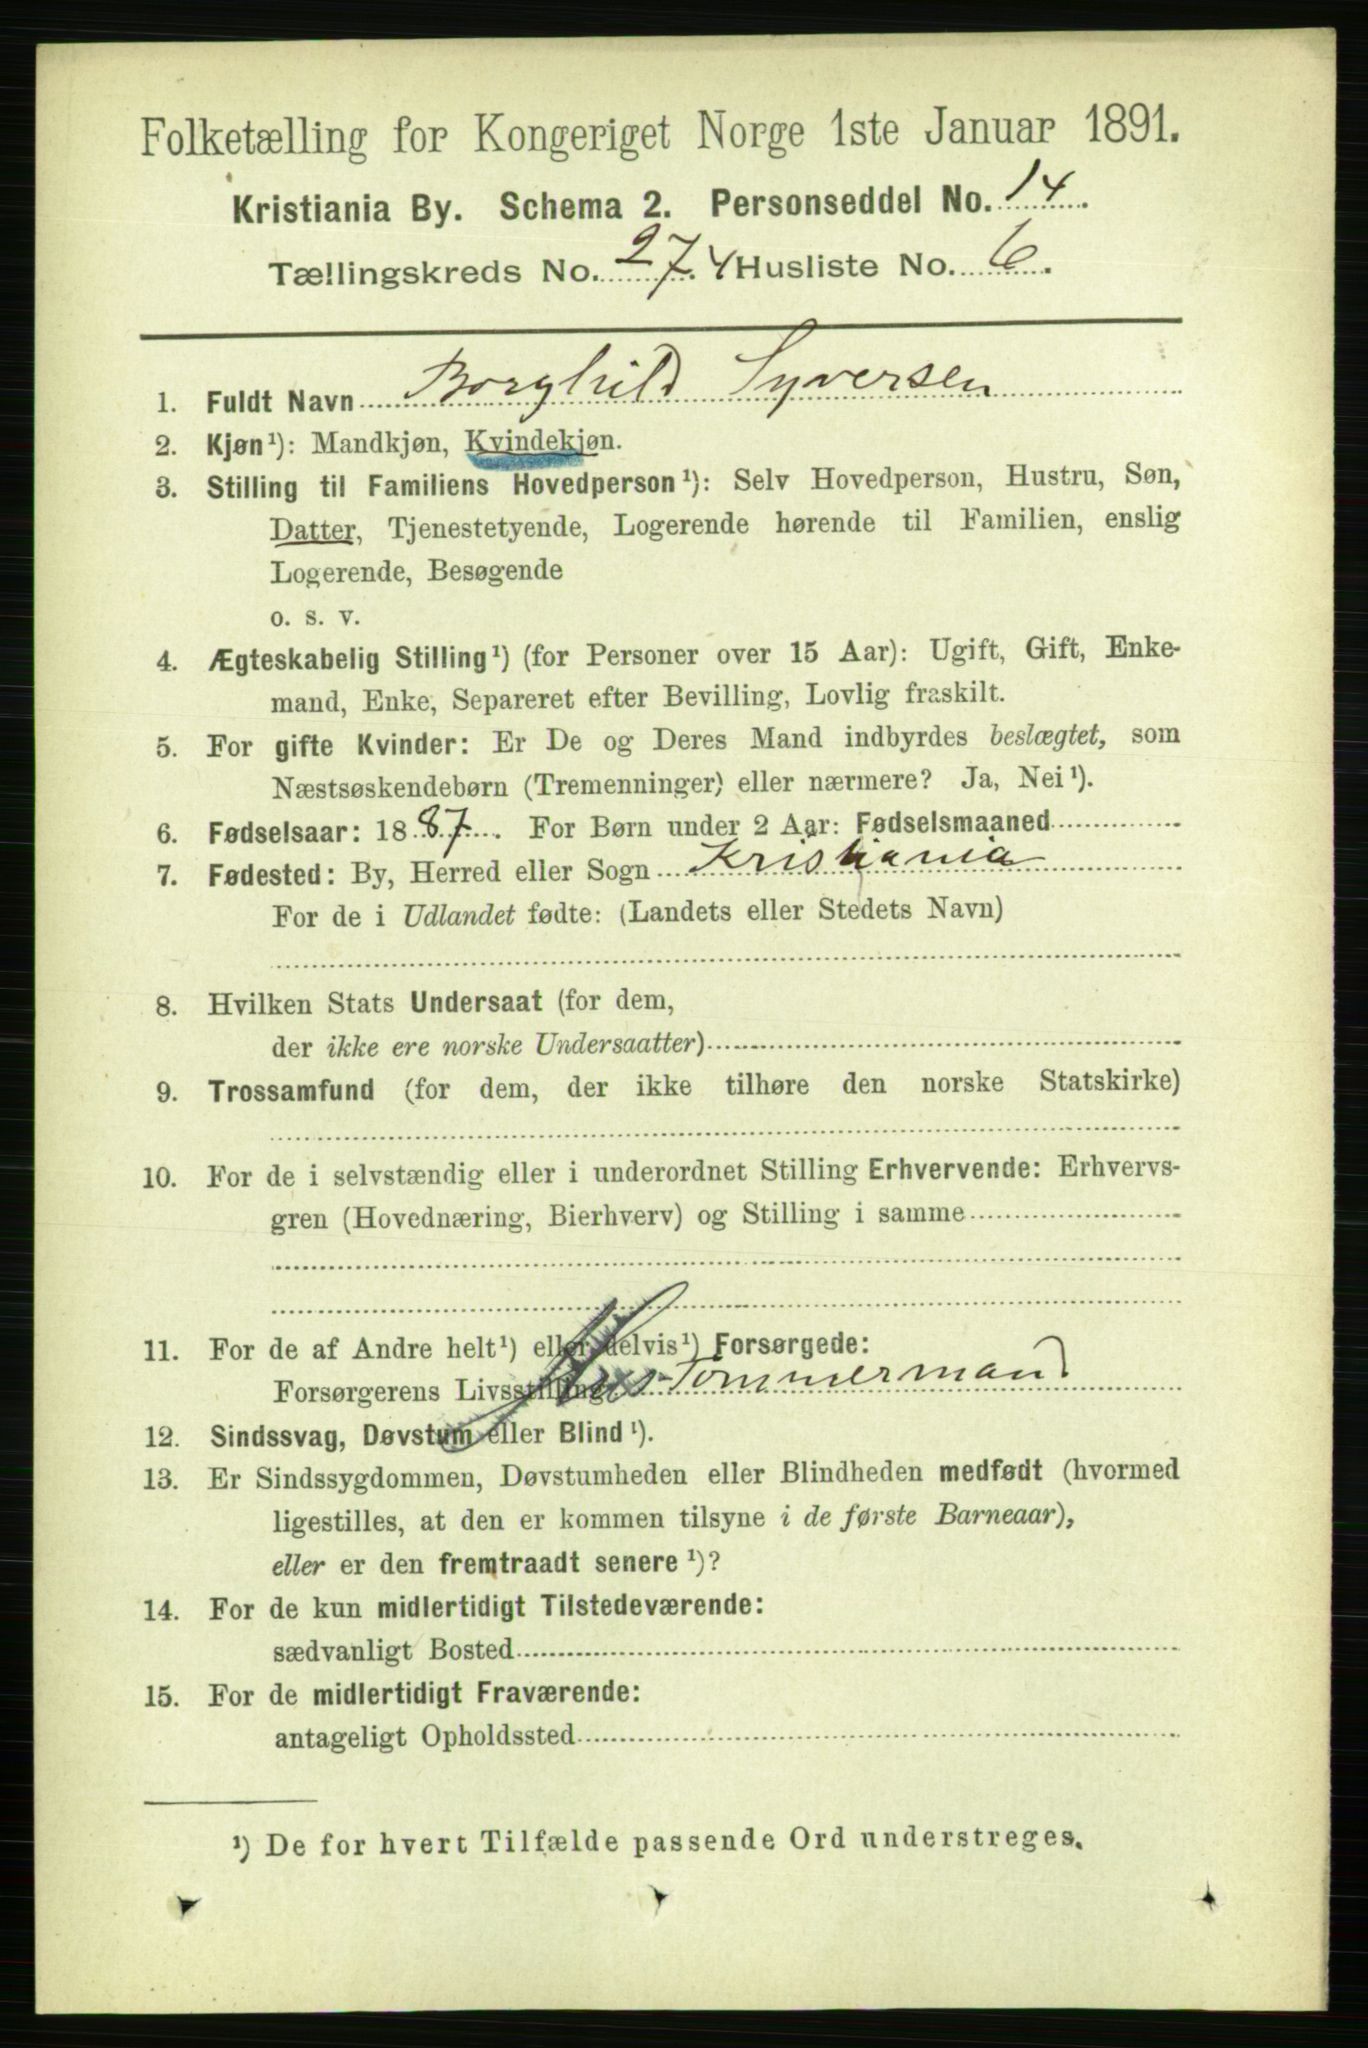 Folketælling for Kongeriget Norge 1ste Januar 1891.
Kristiania By. Schema 2. Personseddel No. 14.
Tællingskreds No. 274 Husliste No. 6.
1. Fuldt Navn Borghild Syversen
2. Kjøn¹): Mandkjøn, Kvindekjøn.
3. Stilling til Familiens Hovedperson¹): Selv Hovedperson, Hustru, Søn,
Datter, Tjenestetyende, Logerende hørende til Familien, enslig
Logerende, Besøgende
o. s. v.
4. Ægteskabelig Stilling¹) (for Personer over 15 Aar): Ugift, Gift, Enke-
mand, Enke, Separeret efter Bevilling, Lovlig fraskilt.
5. For gifte Kvinder: Er De og Deres Mand indbyrdes beslægtet, som
Næstsøskendebørn (Tremenninger) eller nærmere? Ja, Nei¹).
6. Fødselsaar: 1887. For Børn under 2 Aar: Fødselsmaaned
7. Fødested: By, Herred eller Sogn Kristiania
For de i Udlandet fødte: (Landets eller Stedets Navn)
8. Hvilken Stats Undersaat (for dem,
der ikke ere norske Undersaatter)
9. Trossamfund (for dem, der ikke tilhøre den norske Statskirke)
10. For de i selvstændig eller i underordnet Stilling Erhvervende: Erhvervs-
gren (Hovednæring, Bierhverv) og Stilling i samme
11. For de af Andre helt¹) eller delvis¹) Forsørgede:
Forsørgerens Livsstilling Tømmermand
12. Sindssvag, Døvstum eller Blind¹).
13. Er Sindssygdommen, Døvstumheden eller Blindheden medfødt (hvormed
ligestilles, at den er kommen tilsyne i de første Barneaar),
eller er den fremtraadt senere¹)?
14. For de kun midlertidigt Tilstedeværende:
sædvanligt Bosted
15. For de midlertidigt Fraværende:
antageligt Opholdssted
¹) De for hvert Tilfælde passende Ord understreges.